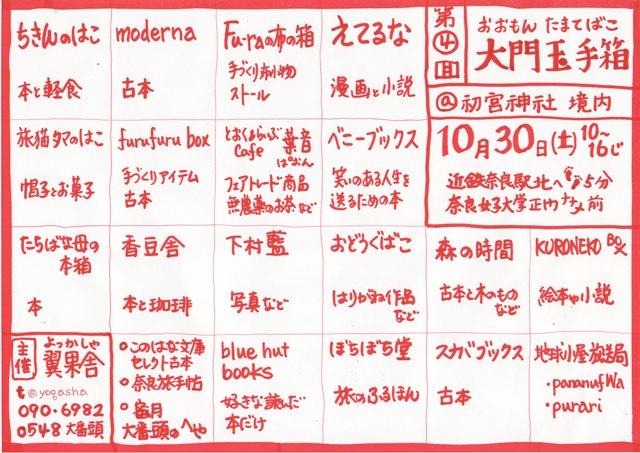 第④回
おおもん たまてばこ
大門玉手箱
@初宮神社 境内
10月30日(土)10~16じ
近鉄奈良駅北へ歩5分
奈良女子大学正門ナナメ前
ちきんのはこ
本と軽食
moderna
古本
Fu-raの布の箱
手づくり布小物
ストール
えてるな
漫画と小説
旅猫タマのはこ
帽子とお菓子
furufuru box
手づくりアイテム
古本
とおくありぶ
Cafe 葉音
ぱおん
フェアトレード商品
無農薬のお茶など
ベニーブックス
笑いのある人生を
送るための本
たちばな母の
本箱
本
香豆舎
本と珈琲
下村藍
写真など
おどうぐばこ
はりがね作品
など
森の時間
古本と木のもの
など
KURONEKO BOX
絵本や小説
主催
よっかしゃ
翼果舎
t@yogasha
090-6982
0548 大番頭
○このはな文庫
セレクト古本
○奈良旅手帖
○蜜月
大番頭のへや
blue hut
books
好きな読んだ
本だけ
ぼちぼち堂
旅のふるほん
スカブブックス
古本
地球小屋放送局
・paranufWa
・purari